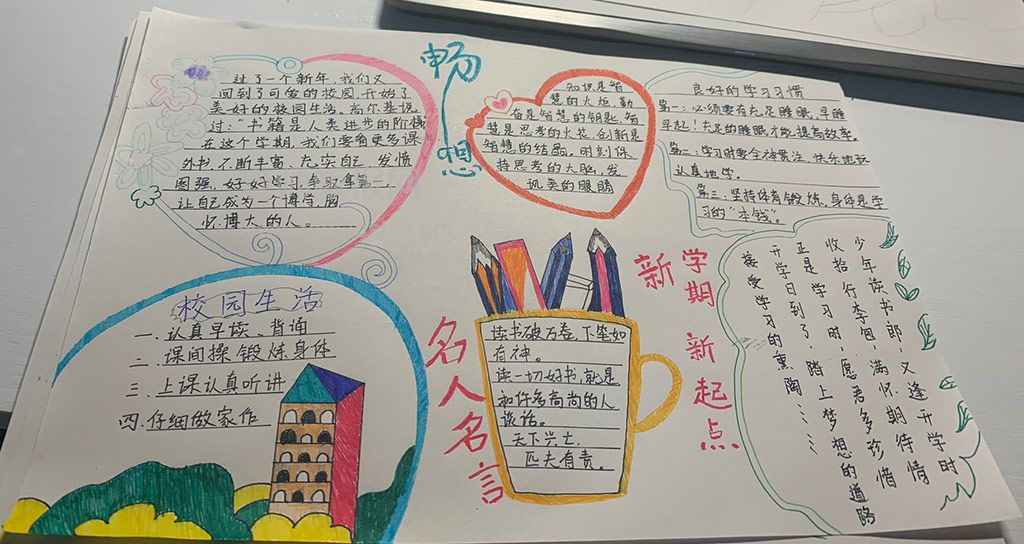 过了一个新年,我们又
回到了可爱的校园,开始了
美好的校园生活。高尔基说
过:“书籍是人类进步的阶梯
在这个学期,我们要看更多课
外书,不断丰富、充实自己,发愤
图强,好好学习,争取拿第一,
让自己成为一个博学,胸
怀博大的人。
畅想
知识是智
慧的火炬,勤
奋是智慧的钥匙,智
慧是思考的火花,创新是
智慧的结晶,时刻保
持思考的大脑,发
现美的眼睛
良好的学习习惯
第一:必须要有充足睡眠,早睡
早起!充足的睡眠才能提高效率
第二:学习时要全神贯注,快乐地玩
认真地学。
第三:坚持体育锻炼,身体是学
习的“本钱”。
校园生活
一、认真早读、背诵
二、课间操锻炼身体
三、上课认真听讲
四、仔细做家作
名人名言
读书破万卷,下笔如
有神。
读一切好书,就是
和许多高尚的人
谈话。
天下兴亡,
匹夫有责。
新学期 新起点
少年读书郎,又逢开学时
收拾行李囤,满怀期待情
正是学习时,愿君多珍惜
开学日到了,踏上梦想的道路
接受学习的熏陶……